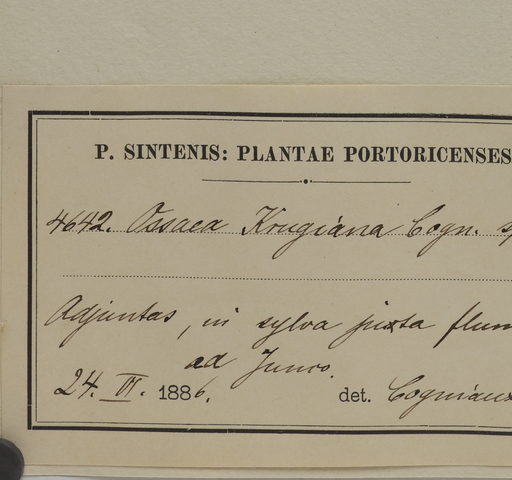 P. SINTENIS: PLANTAE PORTORICENSES
4642. Ossaea Krugiana Cogn.
Adjuntas, in sylva juxta flum
ad Junco.
24. VI. 1886. det. Cogniaux